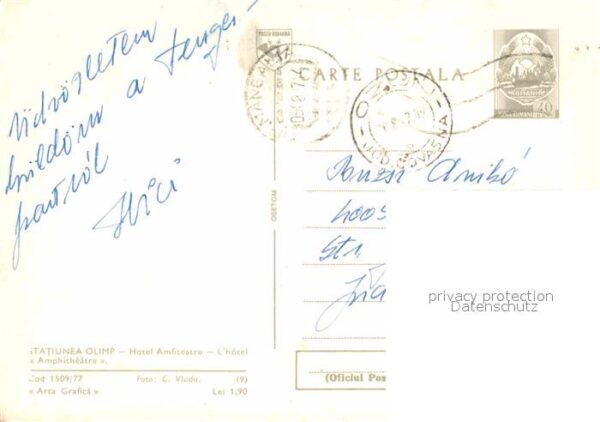 Üdvözletem
küldöm a tenger-
partról
Vici
POSTA ROMANA
CARTE POSTALA
40
Ponzsi Anikó
4005
Str.
privacy protection
Datenschutz
OBETOM
STAȚIUNEA OLIMP — Hotel Amfiteatru — L'hôtel
« Amphithéâtre ».
Cod 1509/77 Foto: C. Vladu. (9)
« Arta Grafică » Lei 1,90
(Oficiul Pos